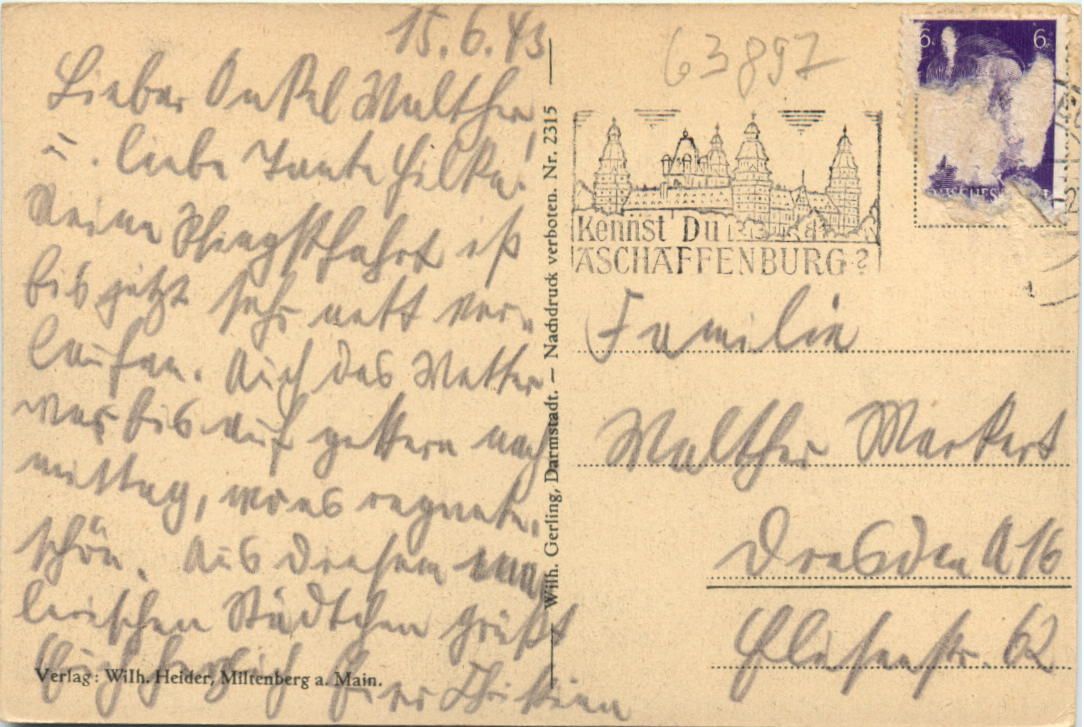 15.6.43
Lieber Onkel Walther
u. liebe Tante Hilka!
Meine Pfingstfahrt ist
bis jetzt sehr nett ver-
laufen. Auch das Wetter
war bis auf gestern nach
mittag, wo es regnete,
schön. Aus diesem ma
lerischen Städtchen grüßt
Euch herzlich Euer Christian
Verlag: Wilh. Heider, Miltenberg a. Main.
Wilh. Gerling, Darmstadt. — Nachdruck verboten. Nr. 2315
63897
6 6
Kennst Du
ASCHAFFENBURG?
Familie
Walther Markert
Dresden A 16
Elisenstr. 62